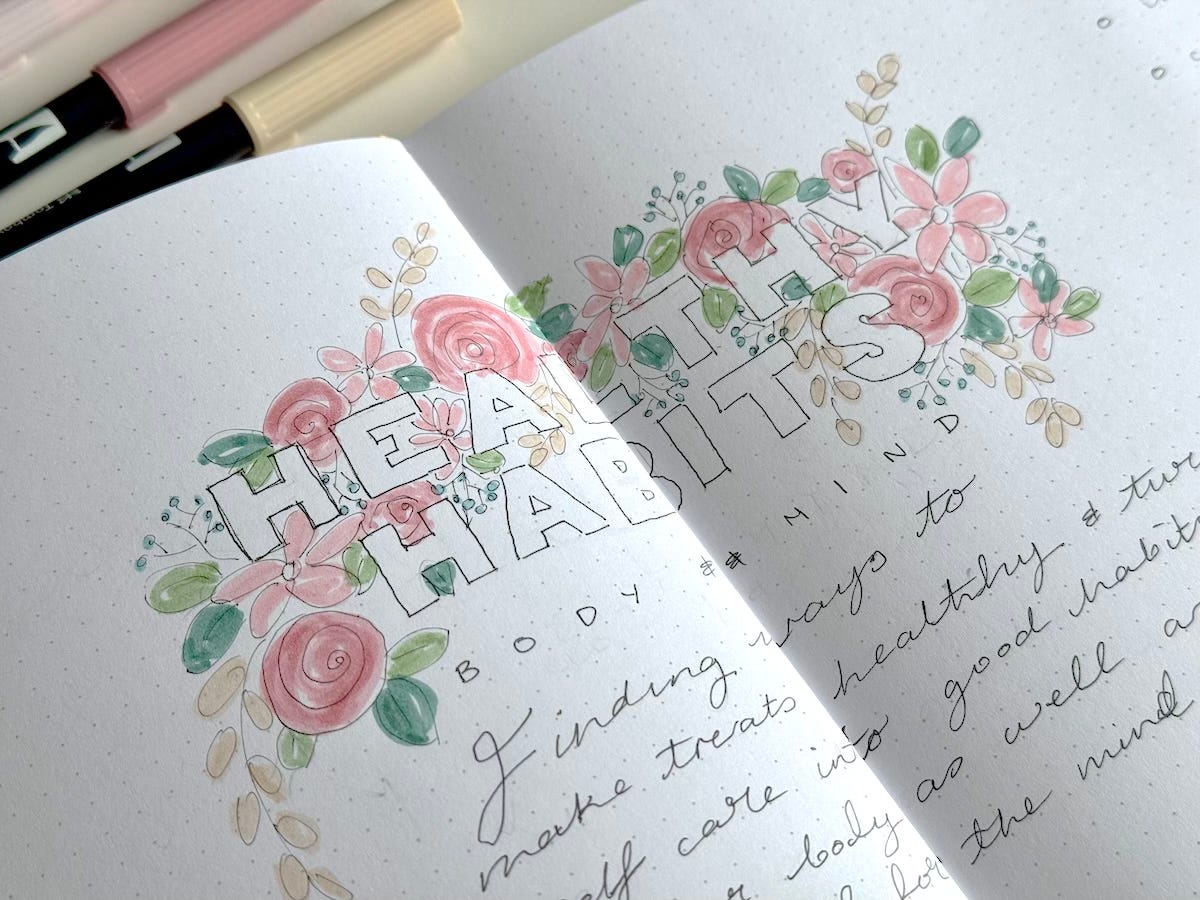 HEALTHY
HABITS
BODY & & MIND
Finding ways to
make treats healthy & tur
elf care into good habit
r body as well a
for the mind